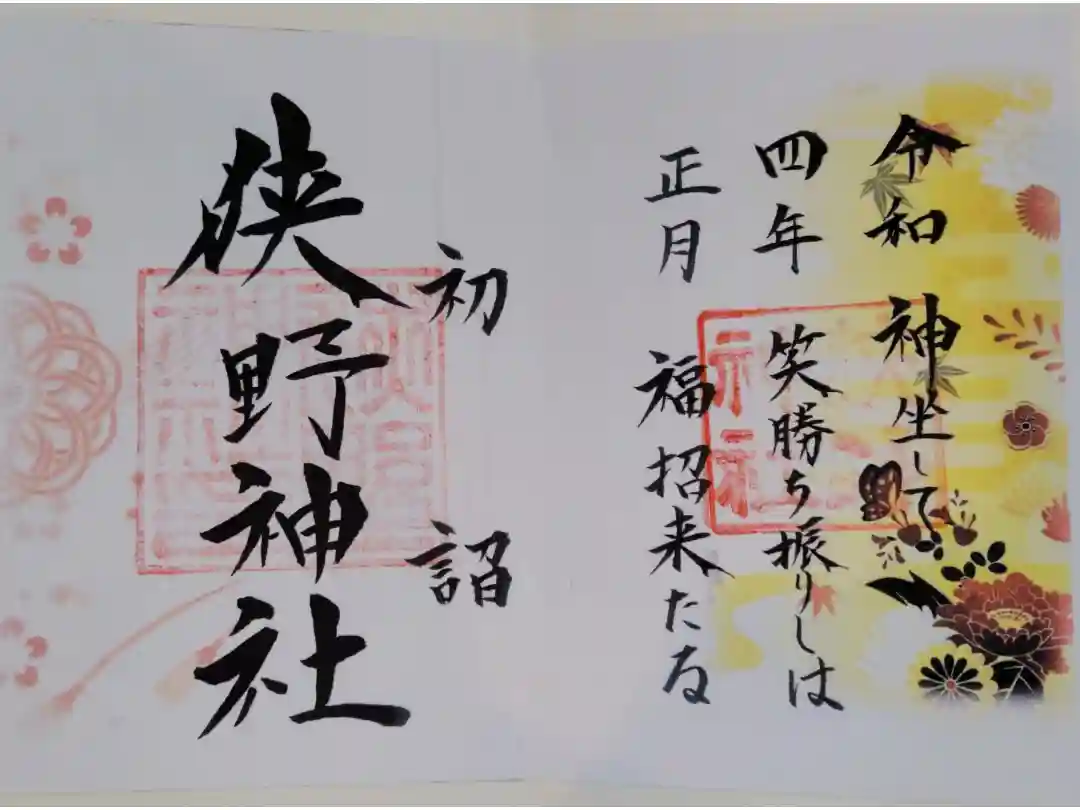 令和 神坐して
四年 笑勝ち振りしは
正月 福招来たる
初詣
狭野神社